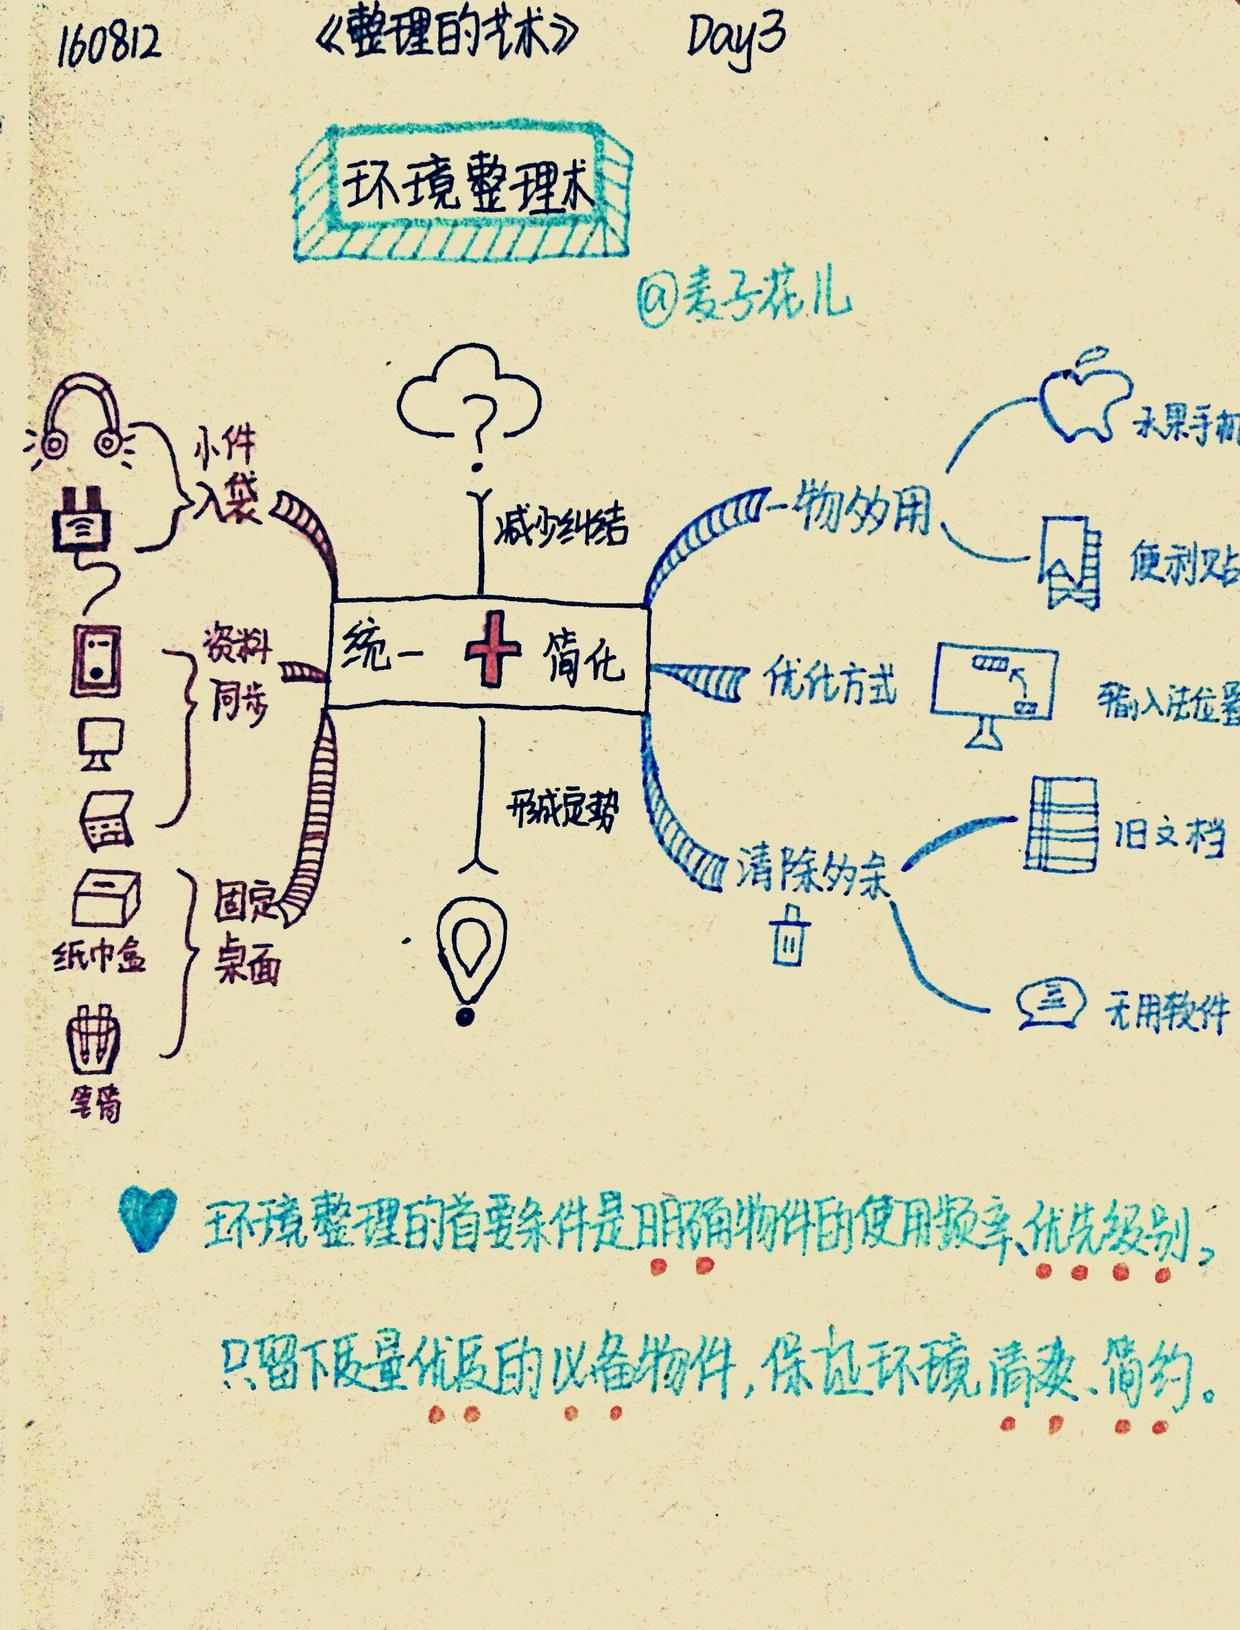 160812 《整理的艺术》 Day3
环境整理术
@麦子花儿
小件
入袋
资料
同步
固定
桌面
纸巾盒
笔筒
减少纠结
统一 + 简化
形成定势
一物多用
水果手机
便利贴
优化方式
输入法位置
清除多余
旧文档
无用软件
环境整理的首要条件是明确物件的使用频率、优先级别，
只留下质量优质的必备物件，保证环境清爽、简约。